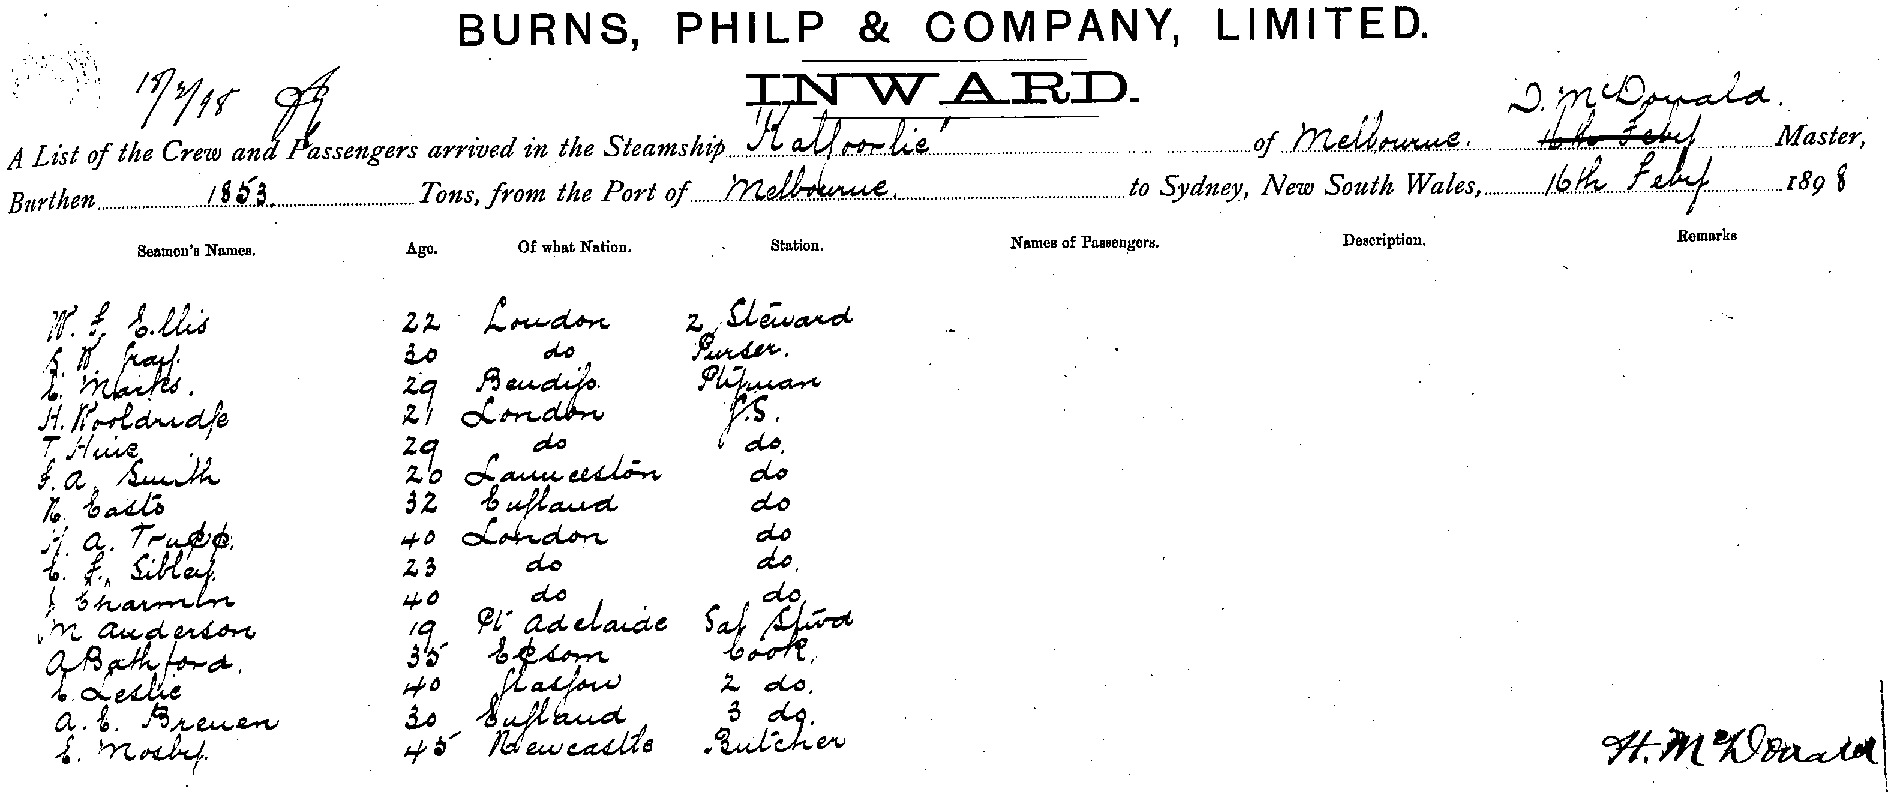 BURNS, PHILP & COMPANY, LIMITED.
INWARD.
18/2/98
D. McDonald.
A List of the Crew and Passengers arrived in the Steamship "Kalgoorlie" of Melbourne. 16th Feby Master,
Burthen 1853. Tons, from the Port of Melbourne. to Sydney, New South Wales, 16th Feby 1898
Seamen's Names. Age. Of what Nation. Station. Names of Passengers. Description. Remarks
W. F. Ellis 22 London 2 Steward
Gray. 30 do Purser.
E. Marks. 29 Bendigo Ptyman
H. Wooldridge 21 London G.S.
T Huie 29 do do.
F. A. Smith 20 Launceston do
R. Easto 32 England do
H. A. Trupp. 40 London do
E. F. Sibley. 23 do do.
J Charmen 40 do do.
M Anderson 19 Pt Adelaide Sal Stwd
A Bathford. 35 Epsom Cook.
E. Leslie 40 Glasgow 2 do.
A. E. Breuen 30 England 3 do.
E. Mosby. 45 Newcastle Butcher
H. McDonald